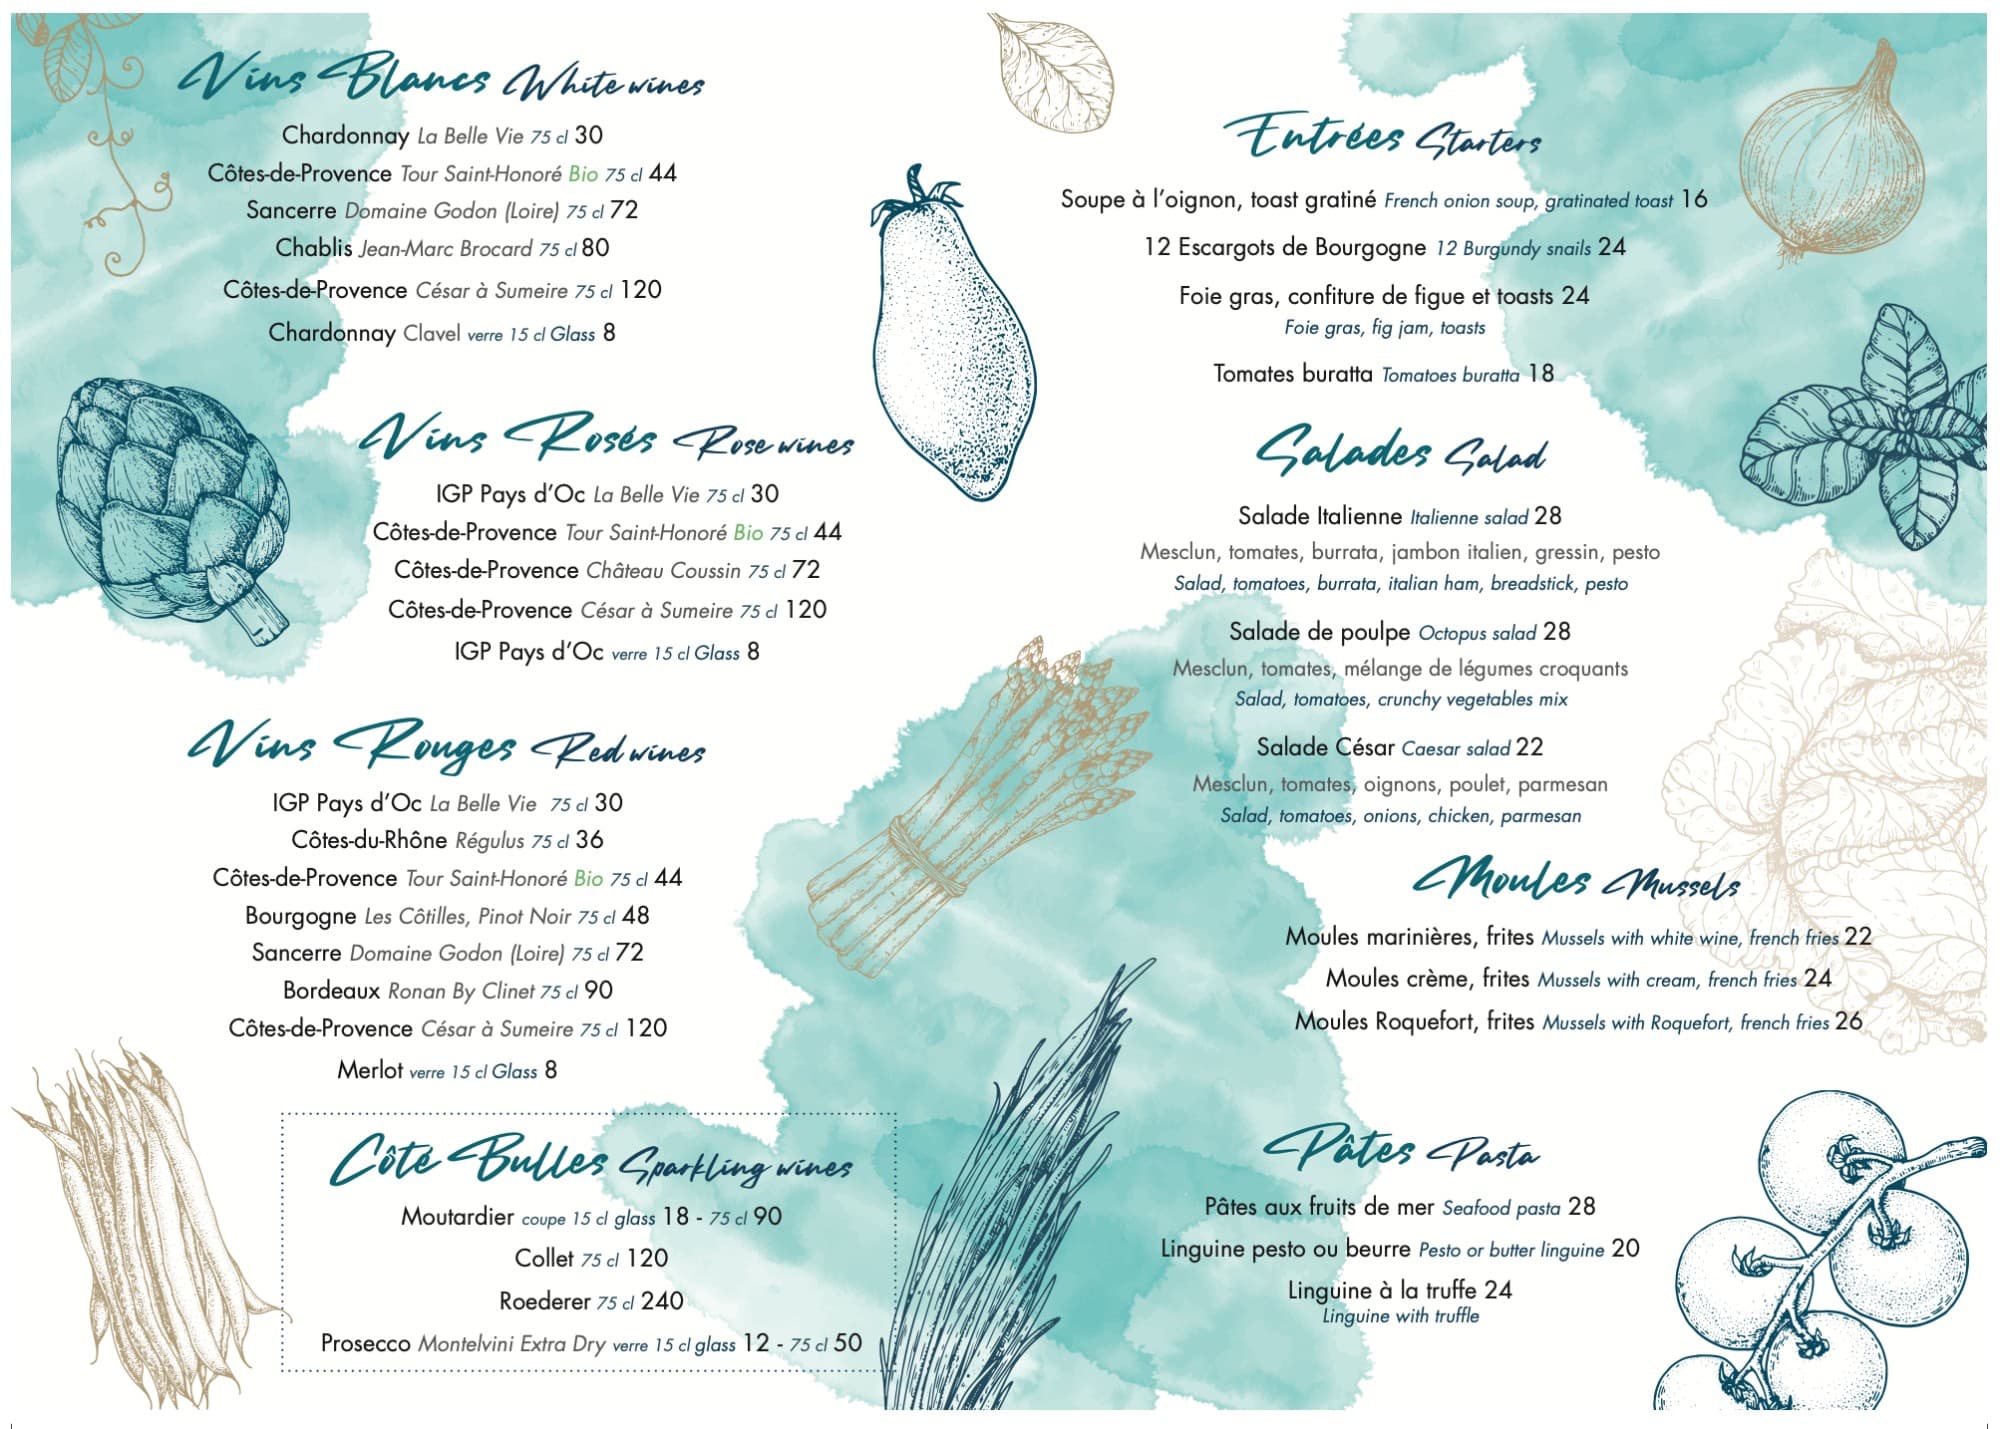 Vins Blancs White wines
Chardonnay La Belle Vie 75 cl 30
Côtes-de-Provence Tour Saint-Honoré Bio 75 cl 44
Sancerre Domaine Godon (Loire) 75 cl 72
Chablis Jean-Marc Brocard 75 cl 80
Côtes-de-Provence César à Sumeire 75 cl 120
Chardonnay Clavel verre 15 cl Glass 8
Vins Rosés Rose wines
IGP Pays d'Oc La Belle Vie 75 cl 30
Côtes-de-Provence Tour Saint-Honoré Bio 75 cl 44
Côtes-de-Provence Château Coussin 75 cl 72
Côtes-de-Provence César à Sumeire 75 cl 120
IGP Pays d'Oc verre 15 cl Glass 8
Vins Rouges Red wines
IGP Pays d'Oc La Belle Vie 75 cl 30
Côtes-du-Rhône Régulus 75 cl 36
Côtes-de-Provence Tour Saint-Honoré Bio 75 cl 44
Bourgogne Les Côtilles, Pinot Noir 75 cl 48
Sancerre Domaine Godon (Loire) 75 cl 72
Bordeaux Ronan By Clinet 75 cl 90
Côtes-de-Provence César à Sumeire 75 cl 120
Merlot verre 15 cl Glass 8
Côté Bulles Sparkling wines
Moutardier coupe 15 cl glass 18 - 75 cl 90
Collet 75 cl 120
Roederer 75 cl 240
Prosecco Montelvini Extra Dry verre 15 cl glass 12 - 75 cl 50
Entrées Starters
Soupe à l'oignon, toast gratiné French onion soup, gratinated toast 16
12 Escargots de Bourgogne 12 Burgundy snails 24
Foie gras, confiture de figue et toasts 24
Foie gras, fig jam, toasts
Tomates buratta Tomatoes buratta 18
Salades Salad
Salade Italienne Italienne salad 28
Mesclun, tomates, burrata, jambon italien, gressin, pesto
Salad, tomatoes, burrata, italian ham, breadstick, pesto
Salade de poulpe Octopus salad 28
Mesclun, tomates, mélange de légumes croquants
Salad, tomatoes, crunchy vegetables mix
Salade César Caesar salad 22
Mesclun, tomates, oignons, poulet, parmesan
Salad, tomatoes, onions, chicken, parmesan
Moules Mussels
Moules marinières, frites Mussels with white wine, french fries 22
Moules crème, frites Mussels with cream, french fries 24
Moules Roquefort, frites Mussels with Roquefort, french fries 26
Pâtes Pasta
Pâtes aux fruits de mer Seafood pasta 28
Linguine pesto ou beurre Pesto or butter linguine 20
Linguine à la truffe 24
Linguine with truffle